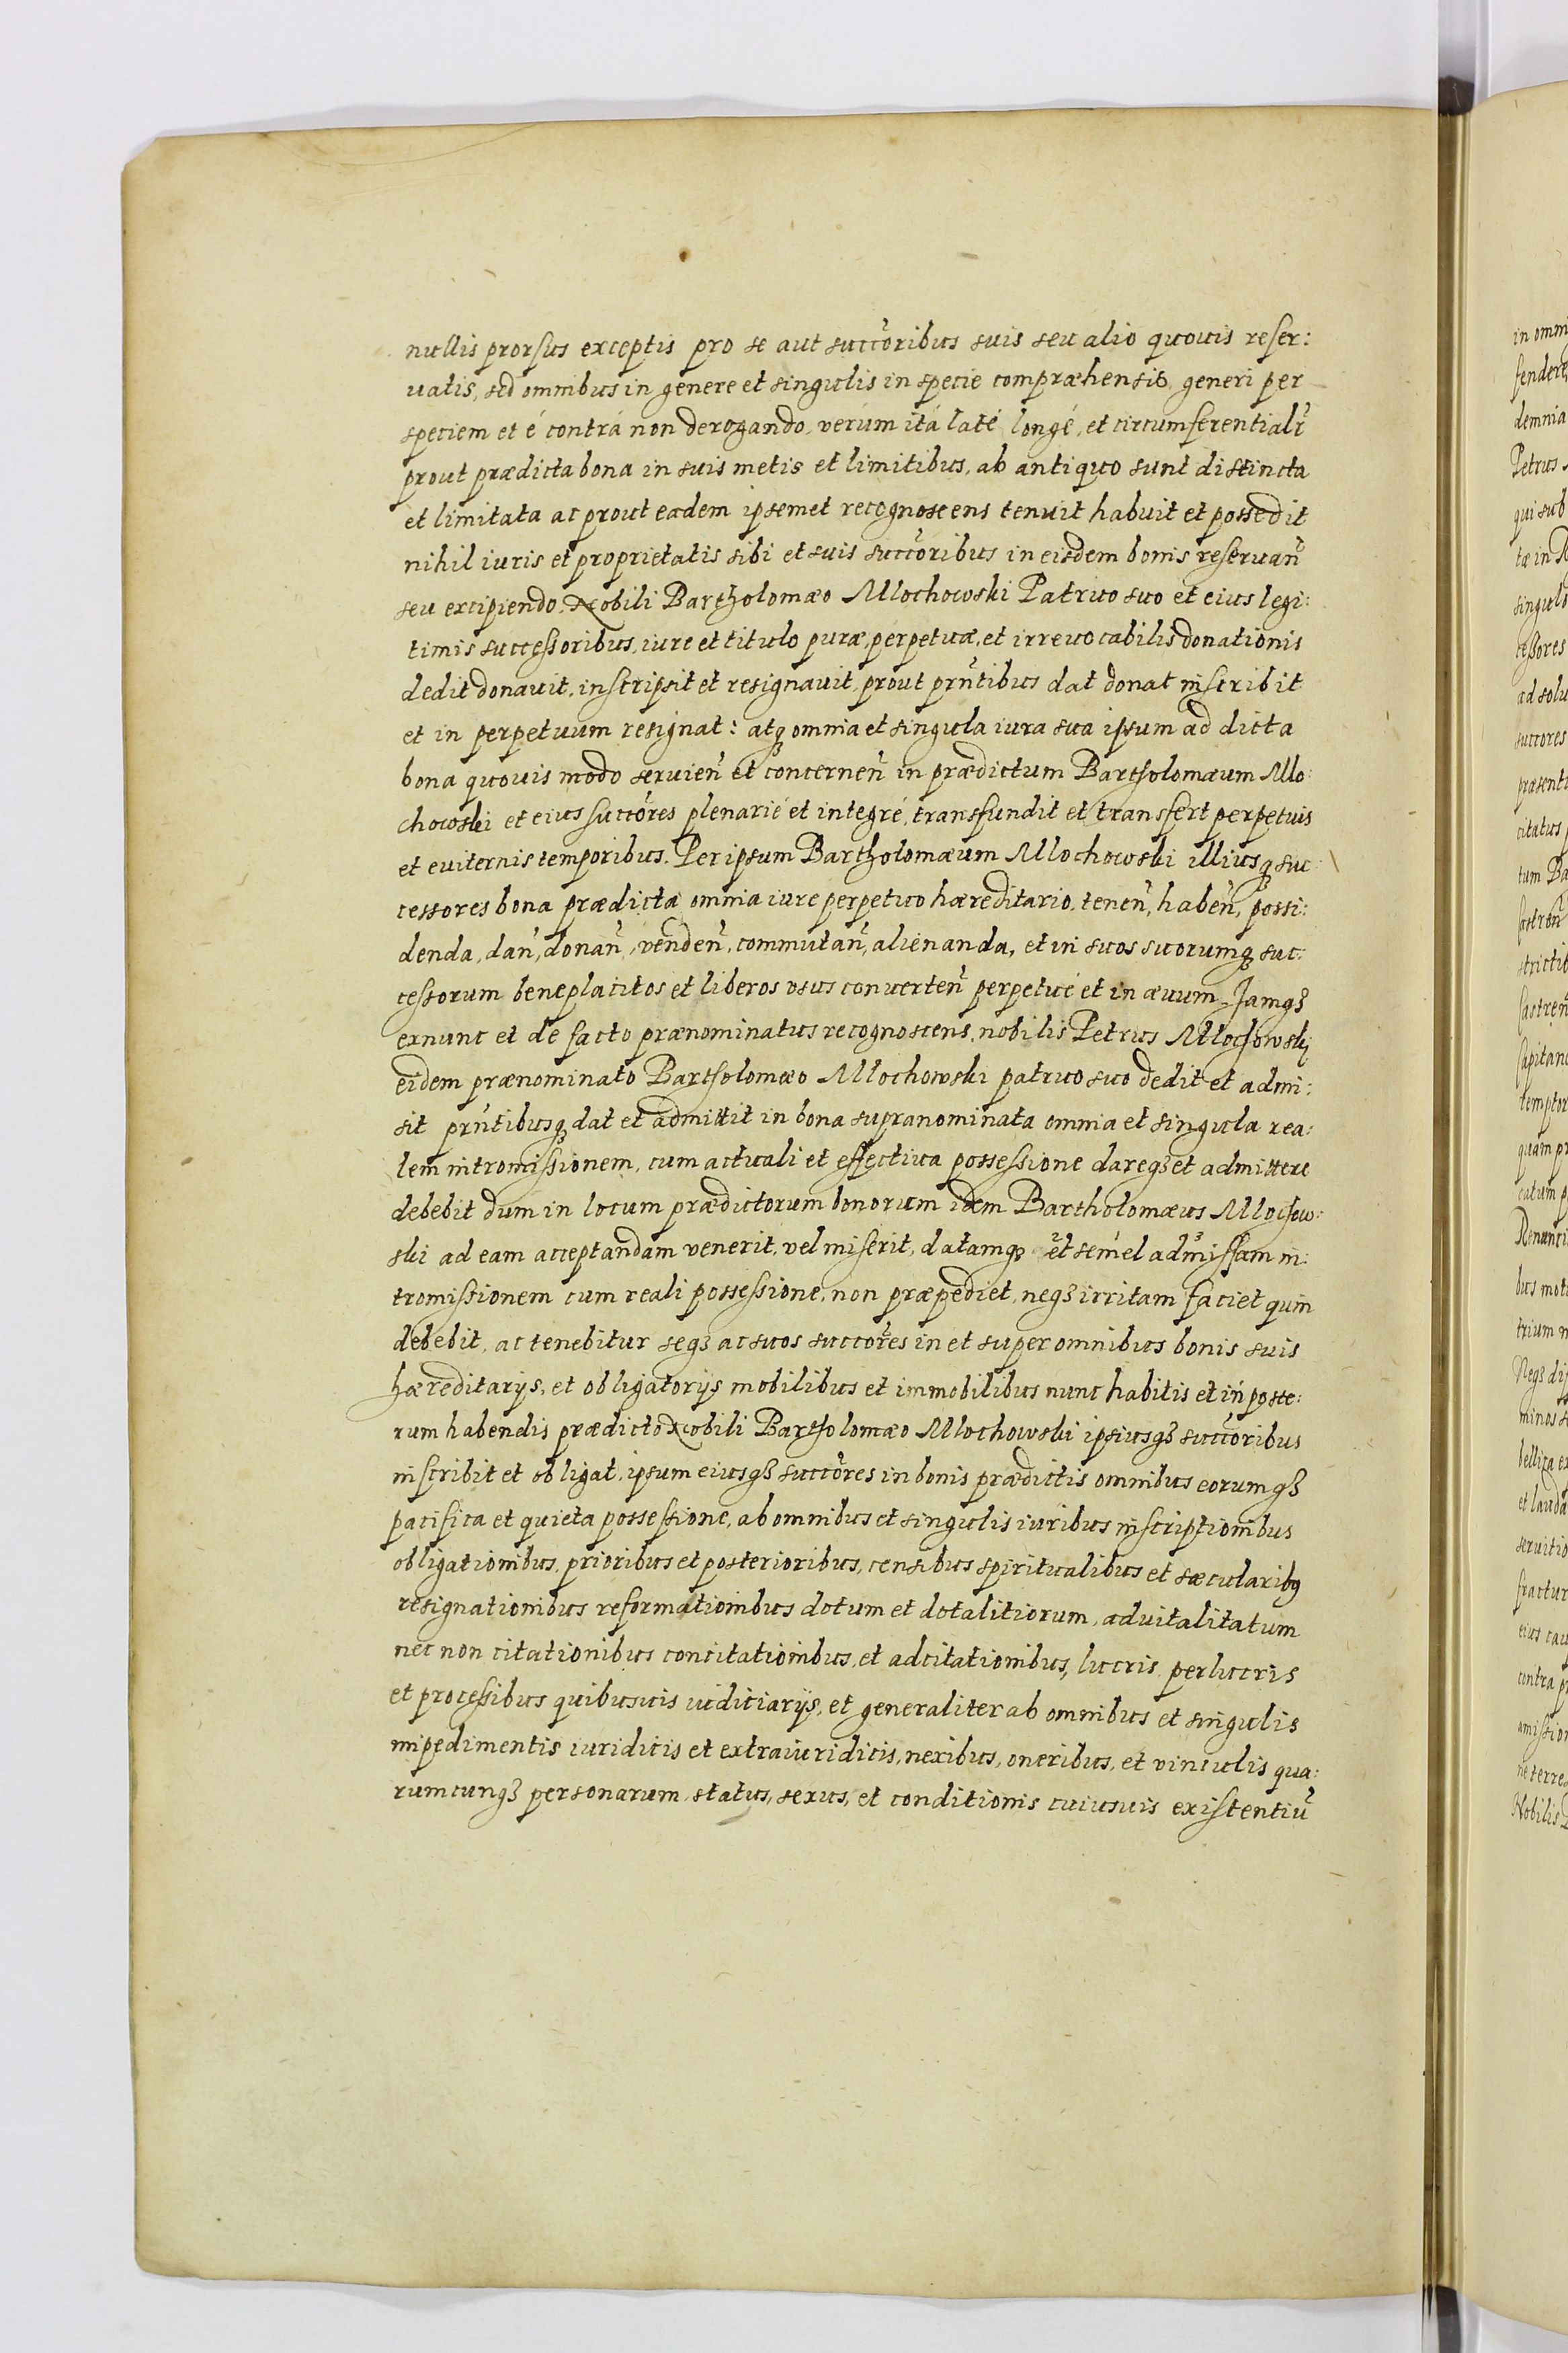 nullis prorsus exceptis pro se aut succ̃oribus suis seu alio quouis reser:
uatis, sed omnibus in genere et singulis in specie compræhensis, generi per
speciem et é contrá non derogando, verum itá laté longé, et circumferentialr̃
prout prædicta bona in suis metis et limitibus, ab antiquo sunt distincta
et limitata ac prout eadem ipsemet recognoscens tenuit habuit et possedit
nihil iuris et proprietatis sibi et suis succ̃oribus in eisdem bonis reseruan̄
seu excipiendo, Nobili Bartholomæo Mlochowski Patruo suo et eius legi:
timis successoribus, iure et titulo puræ, perpetuæ, et irreuocabilis donationis
dedit donauit, inscripsit et resignauit, prout prñtibus dat donat inscribit
et in perpetuum resignat: atq3 omnia et singula iura sua ipsum ad dicta
bona quouis modo seruien̄ et concernen̄ in prædictum Bartholomæum Mlo:
chowski et eius succ̃ores plenarié et integré, transfundit et transfert perpetuis
et euiternis temporibus. Per ipsum Bartholomæum Mlochowski illiusq3 suc:
cessores bona prædicta omnia iure perpetuo hæreditario, tenen̄, haben̄, possi:
denda, dan̄, donan̄, venden̄, commutan̄, alienanda, et in suos suorumq3 suc:
cessorum beneplacitos et liberos vsus conuerten̄ perpetué et in æuum. Jamq3
exnunc et de facto prænominatus recognoscens, nobilis Petrus Mlochowski
eidem prænominato Bartholomæo Mlochowski patruo suo dedit et admi:
sit prñtibusq3 dat et admittit in bona supranominata omnia et singula rea:
lem intromissionem, cum actuali et effectiua possessione dareq3 et admittere
debebit dum in locum prædictorum bonorum idem Bartholomæus Mlochow:
ski ad eam acceptandam venerit, vel miserit, datamq3 et semel admissam in:
tromissionem cum reali possessione, non præpediet, neq3 irritam faciet quin
debebit, ac tenebitur seq3 ac suos succ̃ores in et super omnibus bonis suis
hæreditarijs, et obligatorijs mobilibus et immobilibus nunc habitis et in poste:
rum habendis prædicto Nobili Bartholomæo Mlochowski ipsiusq3 succ̃oribus
inscribit et obligat, ipsum eiusq3 succ̃ores in bonis prædictis omnibus eorumq3
pacifica et quieta possessione, ab omnibus et singulis iuribus inscriptionibus
obligationibus, prioribus et posterioribus, censibus spiritualibus et sæcularibq
resignationibus reformationibus dotum et dotalitiorum, aduitalitatum
nec non citationibus concitationibus, et adcitationibus, lucris, perlucris
et processibus quibusuis iudiciarijs, et generaliter ab omnibus et singulis
impedimentis iuridicis et extraiuridicis, nexibus, oneribus, et vinculis qua:
rumcunq3 personarum, status, sexus, et conditionis cuiusuis existentiū